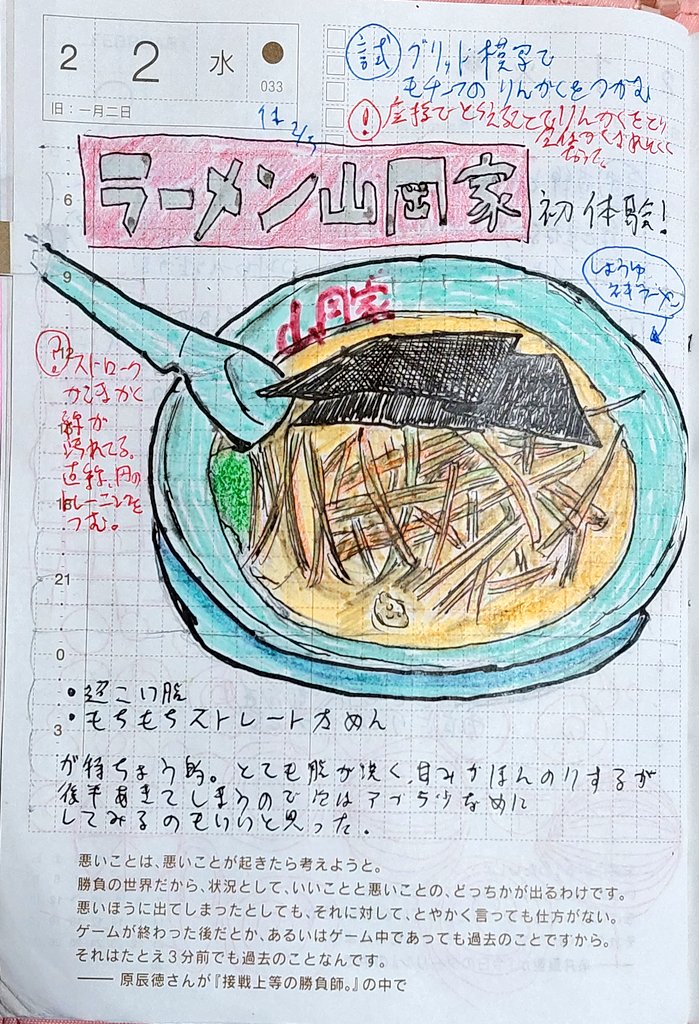 2 2 水
033
旧：一月二日
試 グリッド模写で
モチーフのりんかくをつかむ
! 座標でとらえることでりんかくをとり
ラーメン山岡家
初体験!
しょうゆ
ネギラーメン
山岡家
6
9
12
ストローク
かこまかく
線が
汚れてる。
直線、円の
トレーニングを
つむ。
21
0
3
・超こい脂
・もちもちストレート太めん
が特ちょう的。とても脂が濃く、甘みがほんのりするが
後半あきてしまうので次はアブラ少なめに
してみるのもいいと思った。
悪いことは、悪いことが起きたら考えようと。
勝負の世界だから、状況として、いいことと悪いことの、どっちかが出るわけです。
悪いほうに出てしまったとしても、それに対して、とやかく言っても仕方がない。
ゲームが終わった後だとか、あるいはゲーム中であっても過去のことですから。
それはたとえ3分前でも過去のことなんです。
―― 原辰徳さんが『接戦上等の勝負師。』の中で